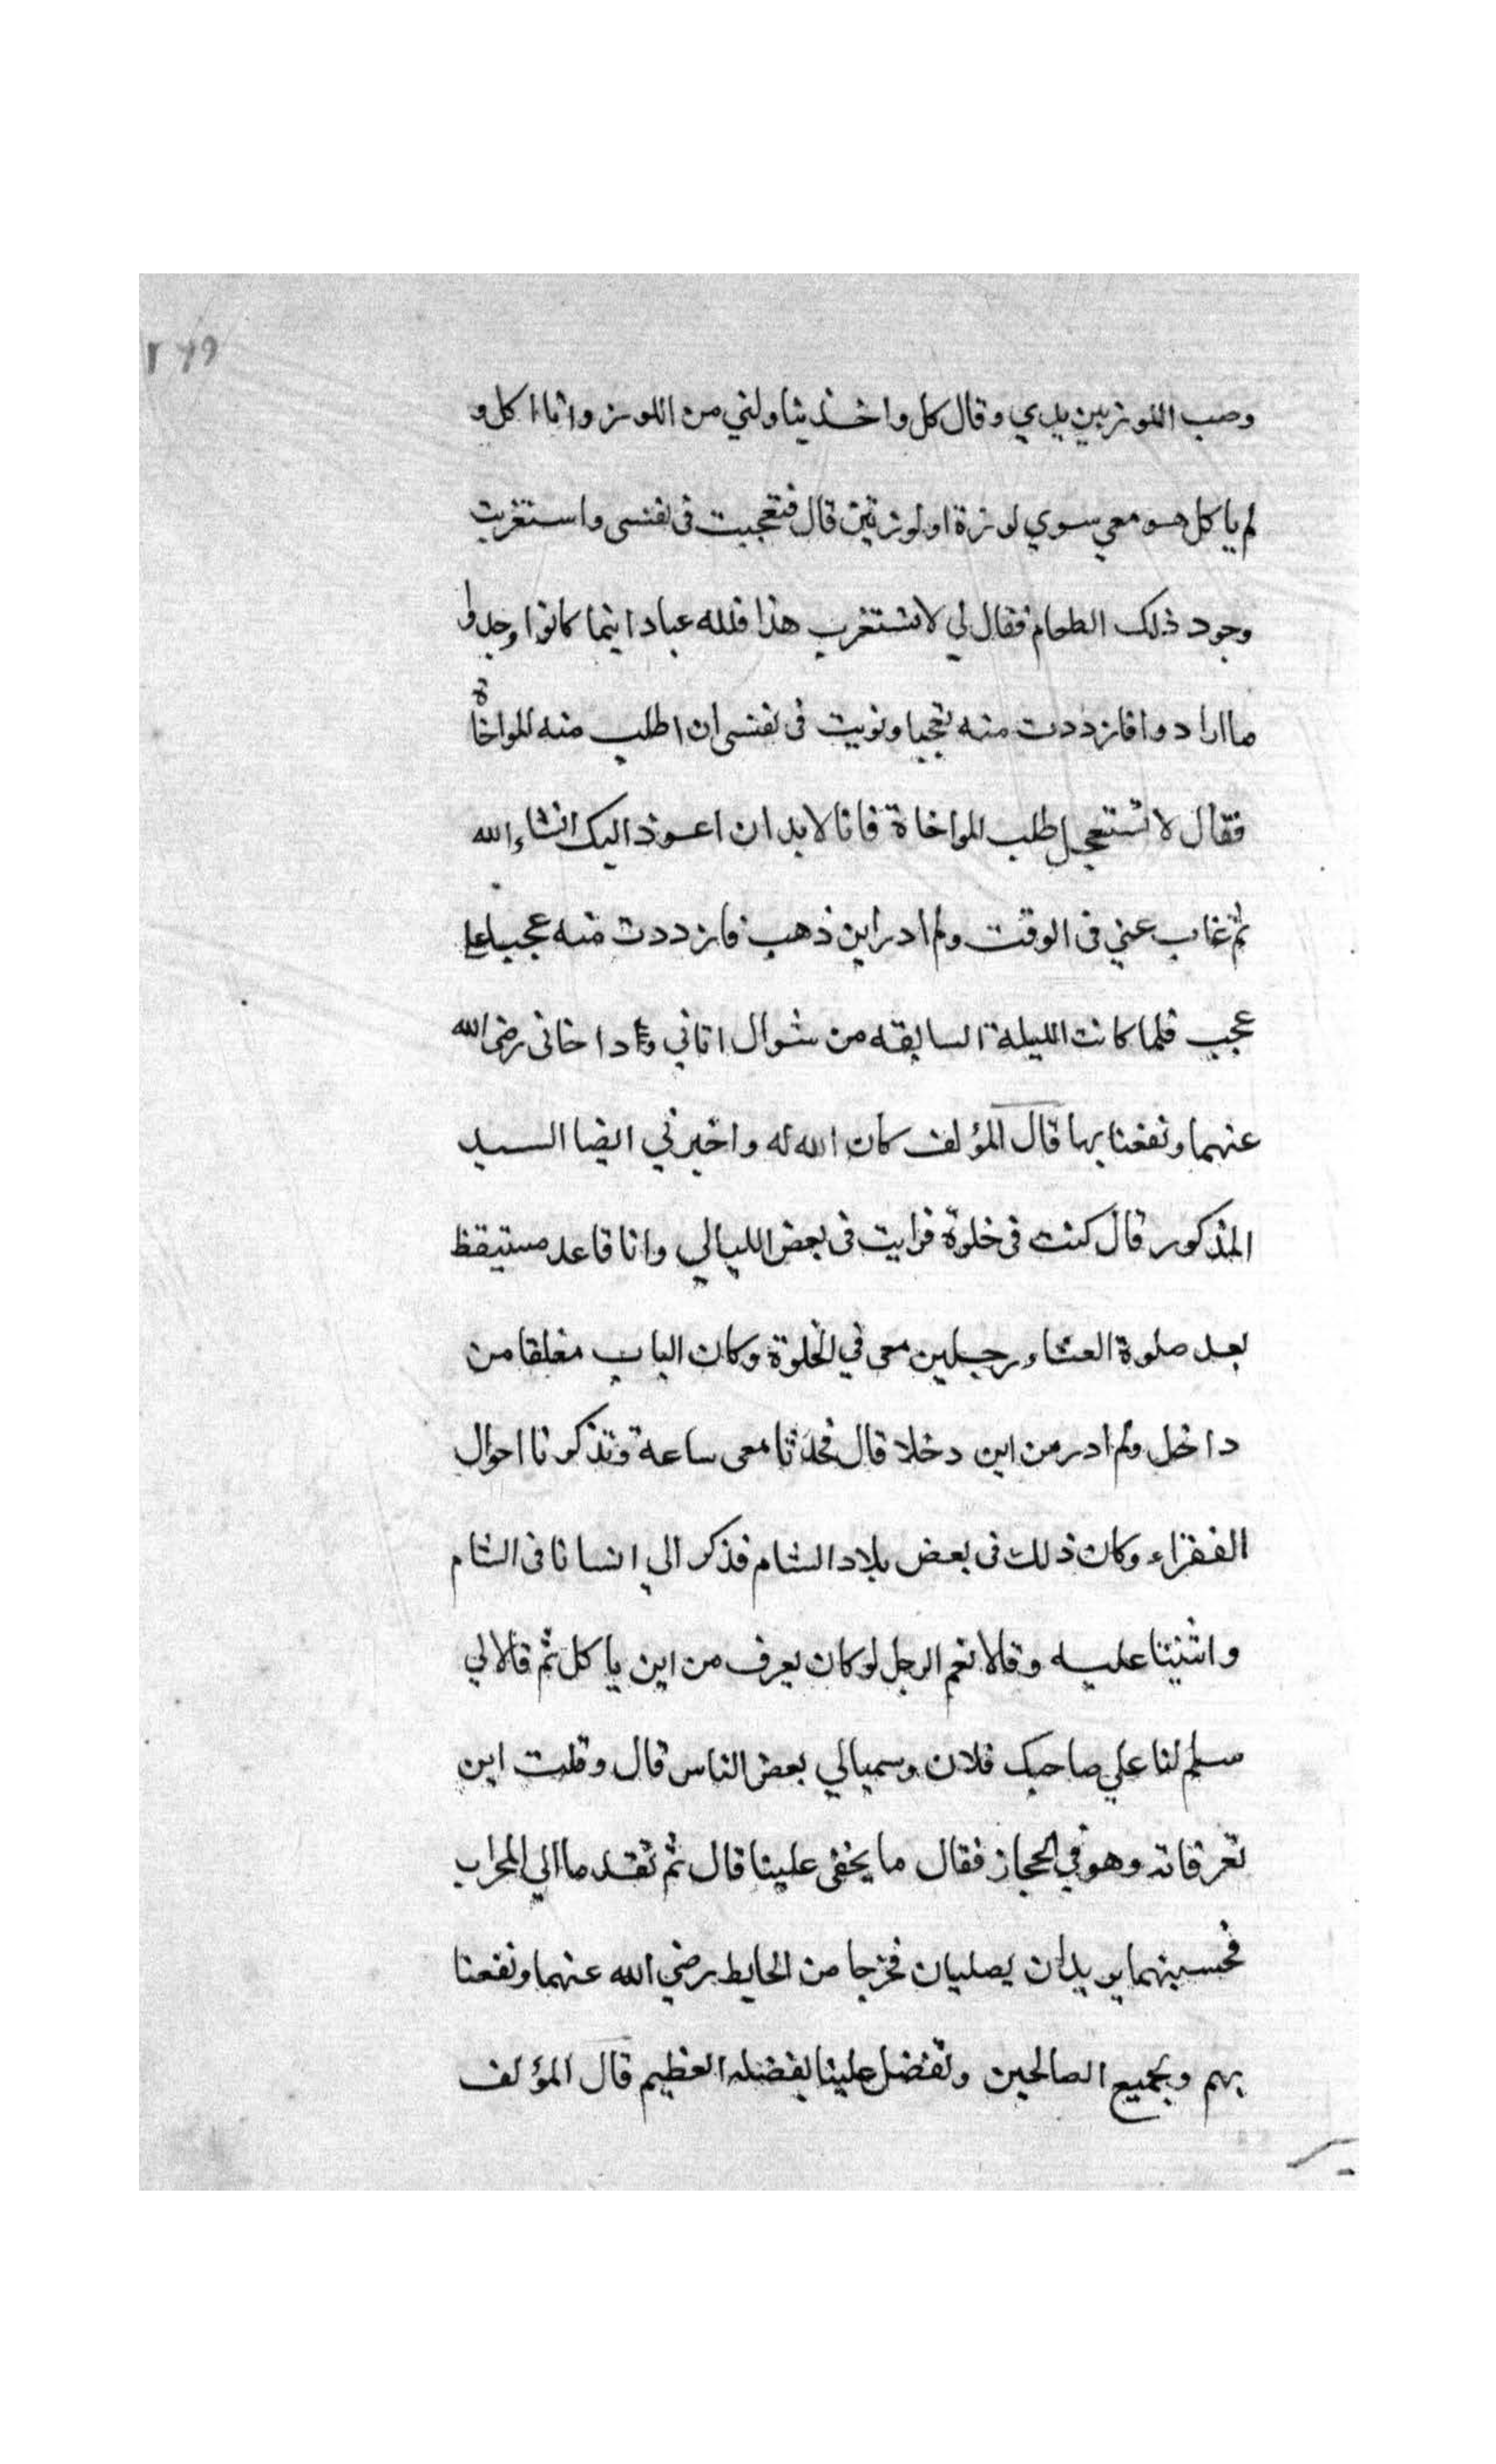 وصب اللوز بين يدي وقال كل واخذ يناولني من اللوز وانا اكل و
لم ياكل هو معي سوي لوزة او لوزتين قال فتعجبت فى نفسى واستغربت
وجود ذلك الطعام فقال لي لا تستغرب هذا فلله عباد اينما كانوا وجدوا
ما ارادوا فازددت منه تعجبا ونويت فى نفسى ان اطلب منه المواخاة
فقال لا تستعجل طلب المواخاة فانا لابد ان اعوذ اليك انشاء الله
ثم غاب عني فى الوقت ولم ادر اين ذهب فازددت منه عجبا على
عجب فلما كانت الليلة السابقه من شوال اتاني واخانى رضى الله
عنهما ونفعنا بها قال المؤلف كان الله له واخبرني ايضا السيد
المذكور قال كنت فى خلوة فرايت فى بعض الليالي وانا قاعد مستيقظ
بعد صلوة العشاء رجلين معى في الخلوة وكان الباب مغلقا من
داخل ولم ادر من اين دخلا قال فحدثا معى ساعة وتذكرنا احوال
الفقراء وكان ذلك فى بعض بلاد الشام فذكر الي انسانا فى الشام
واثنينا عليه وقالا نعم الرجل لو كان يعرف من اين ياكل ثم قالا لي
سلم لنا علي صاحبك فلان وسميا لي بعض الناس قال وقلت اين
تعرفانه وهو في الحجاز فقال ما يخفى علينا قال ثم تقدما الي المحراب
فحسبتهما يريدان يصليان فخرجا من الحايط رضي الله عنهما ونفعنا
بهم وبجميع الصالحين وتفضل علينا بفضله العظيم قال المؤلف